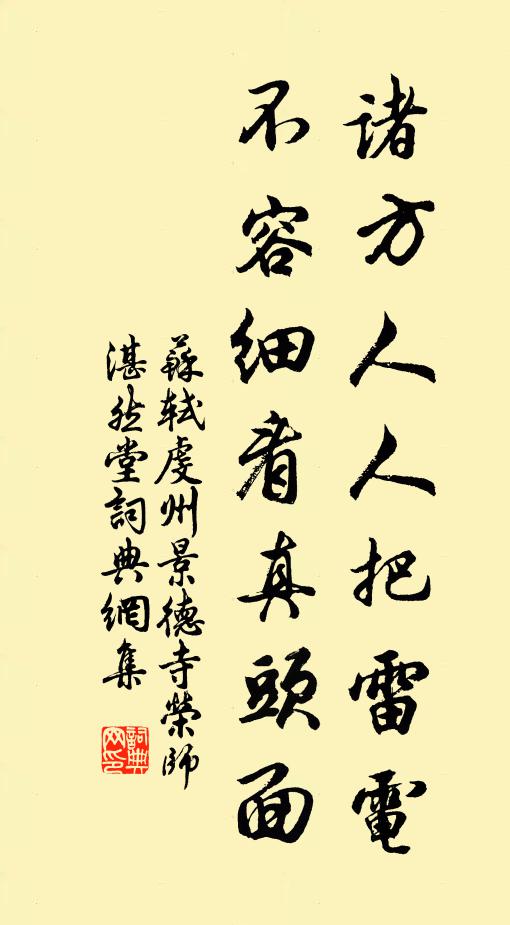 諸方人人把雷電
不容細看真頭面
蘇軾虔州景德寺榮師
湛然堂詞典網集
詞典網印